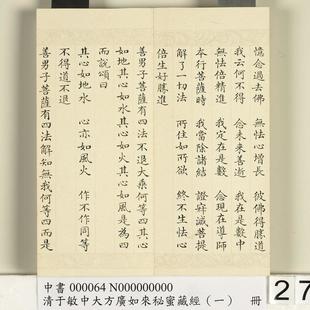 憶念過去佛　無怯心增長　彼佛得勝道
我云何不得　念未來善逝　我在是數中
無怯倍精進　我定在是數　念現在導師
奉行菩薩時　我當除諸結　證寂滅菩提
解了一切法　所住如所欲　終不生怯心
倍生好勝進
善男子菩薩有四法不退大乘何等四其心
如地其心如水其心如火其心如風是為四
而說頌曰
其心如地水　心亦如風火　作不作同等
不得道不退
善男子菩薩有四法解知無我何等四而是
中書 000064 N000000000
清于敏中大方廣如來秘蜜藏經（一）　冊
27